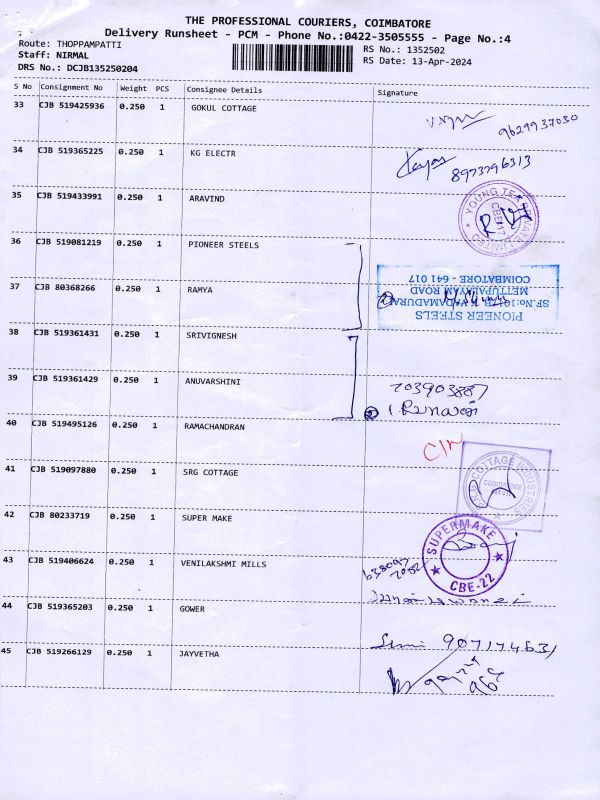 THE PROFESSIONAL COURIERS, COIMBATORE
Delivery Runsheet - PCM - Phone No.:0422-3505555 - Page No.:4
Route: THOPPAMPATTI
RS No.: 1352502
Staff: NIRMAL
RS Date: 13-Apr-2024
DRS No.: DCJB135250204
S No Consignment No Weight PCS Consignee Details Signature
33 CJB 519425936 0.250 1 GOKUL COTTAGE
9629937030
34 CJB 519365225 0.250 1 KG ELECTR
8973796313
35 CJB 519433991 0.250 1 ARAVIND
YOUNG TEX
36 CJB 519081219 0.250 1 PIONEER STEELS
37 CJB 80368266 0.250 1 RAMYA
PIONEER STEELS
METTUPALAYAM ROAD
COIMBATORE - 641 017
38 CJB 519361431 0.250 1 SRIVIGNESH
39 CJB 519361429 0.250 1 ANUVARSHINI
7039038871
40 CJB 519495126 0.250 1 RAMACHANDRAN
41 CJB 519097880 0.250 1 SRG COTTAGE
COTTAGE INDUSTRIES
42 CJB 80233719 0.250 1 SUPER MAKE
SUPERMAKE
CBE-22
43 CJB 519406624 0.250 1 VENILAKSHMI MILLS
44 CJB 519365203 0.250 1 GOWER
9071714631
45 CJB 519266129 0.250 1 JAYVETHA